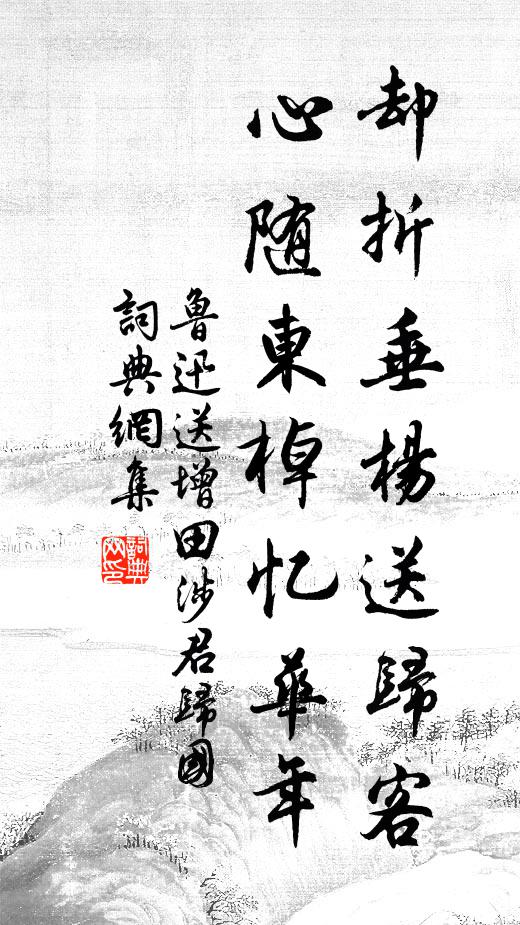 却折垂楊送歸客
心随東棹忆華年
魯迅送增田涉君歸國
詞典網集
詞典網印